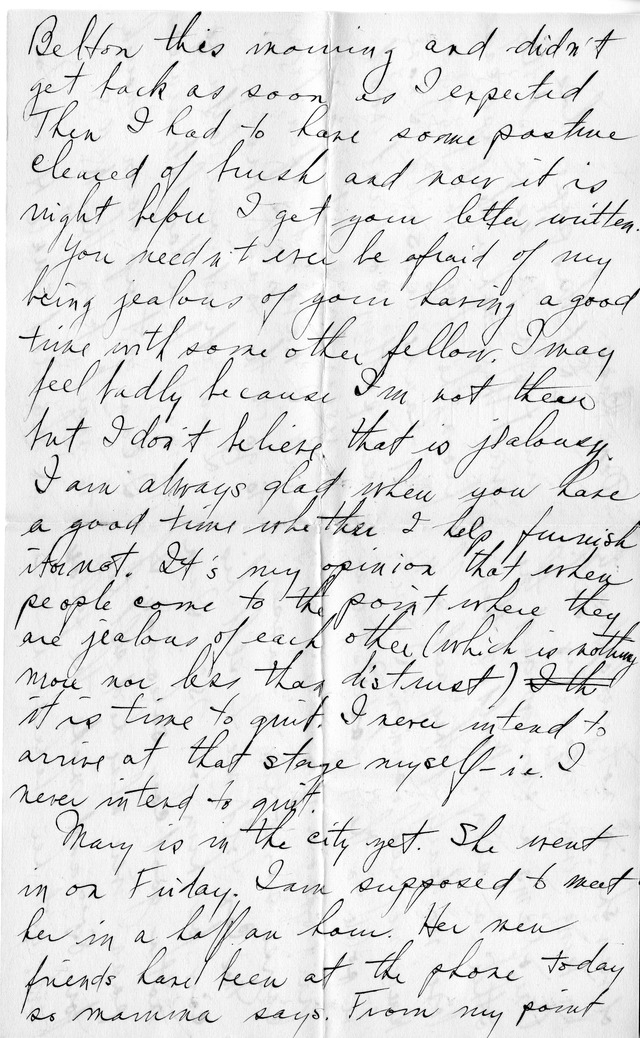 Belton this morning and didn't
get back as soon as I expected
Then I had to have some pasture
cleared of brush and now it is
night before I get your letter written.
You needn't ever be afraid of my
being jealous of your having a good
time with some other fellow. I may
feel badly because I'm not there
but I don't believe that is jealousy.
I am always glad when you have
a good time whether I help furnish
it or not. It's my opinion that when
people come to the point where they
are jealous of each other (which is nothing
more nor less than distrust) I th
it is time to quit. I never intend to
arrive at that stage myself - i.e. I
never intend to quit.
Mary is in the city yet. She went
in on Friday. I am supposed to meet
her in a half an hour. Her men
friends have been at the phone today
so mamma says. From my point